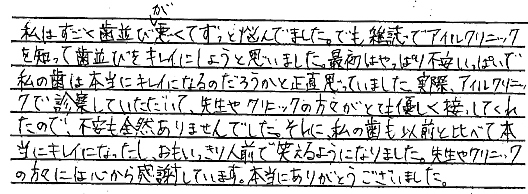 私はすごく歯並びが悪くてずっと悩んでました。でも、雑誌でアイルクリニック
を知って歯並びをキレイにしようと思いました。最初はやっぱり不安いっぱいで
私の歯は本当にキレイになるのだろうかと正直思っていました。実際、アイルクリニッ
クで診察していただいて、先生やクリニックの方々がとても優しく接してくれ
たので、不安も全然ありませんでした。それに、私の歯も以前と比べて本
当にキレイになったし、おもいっきり人前で笑えるようになりました。先生やクリニック
の方々には心から感謝しています。本当にありがとうございました。